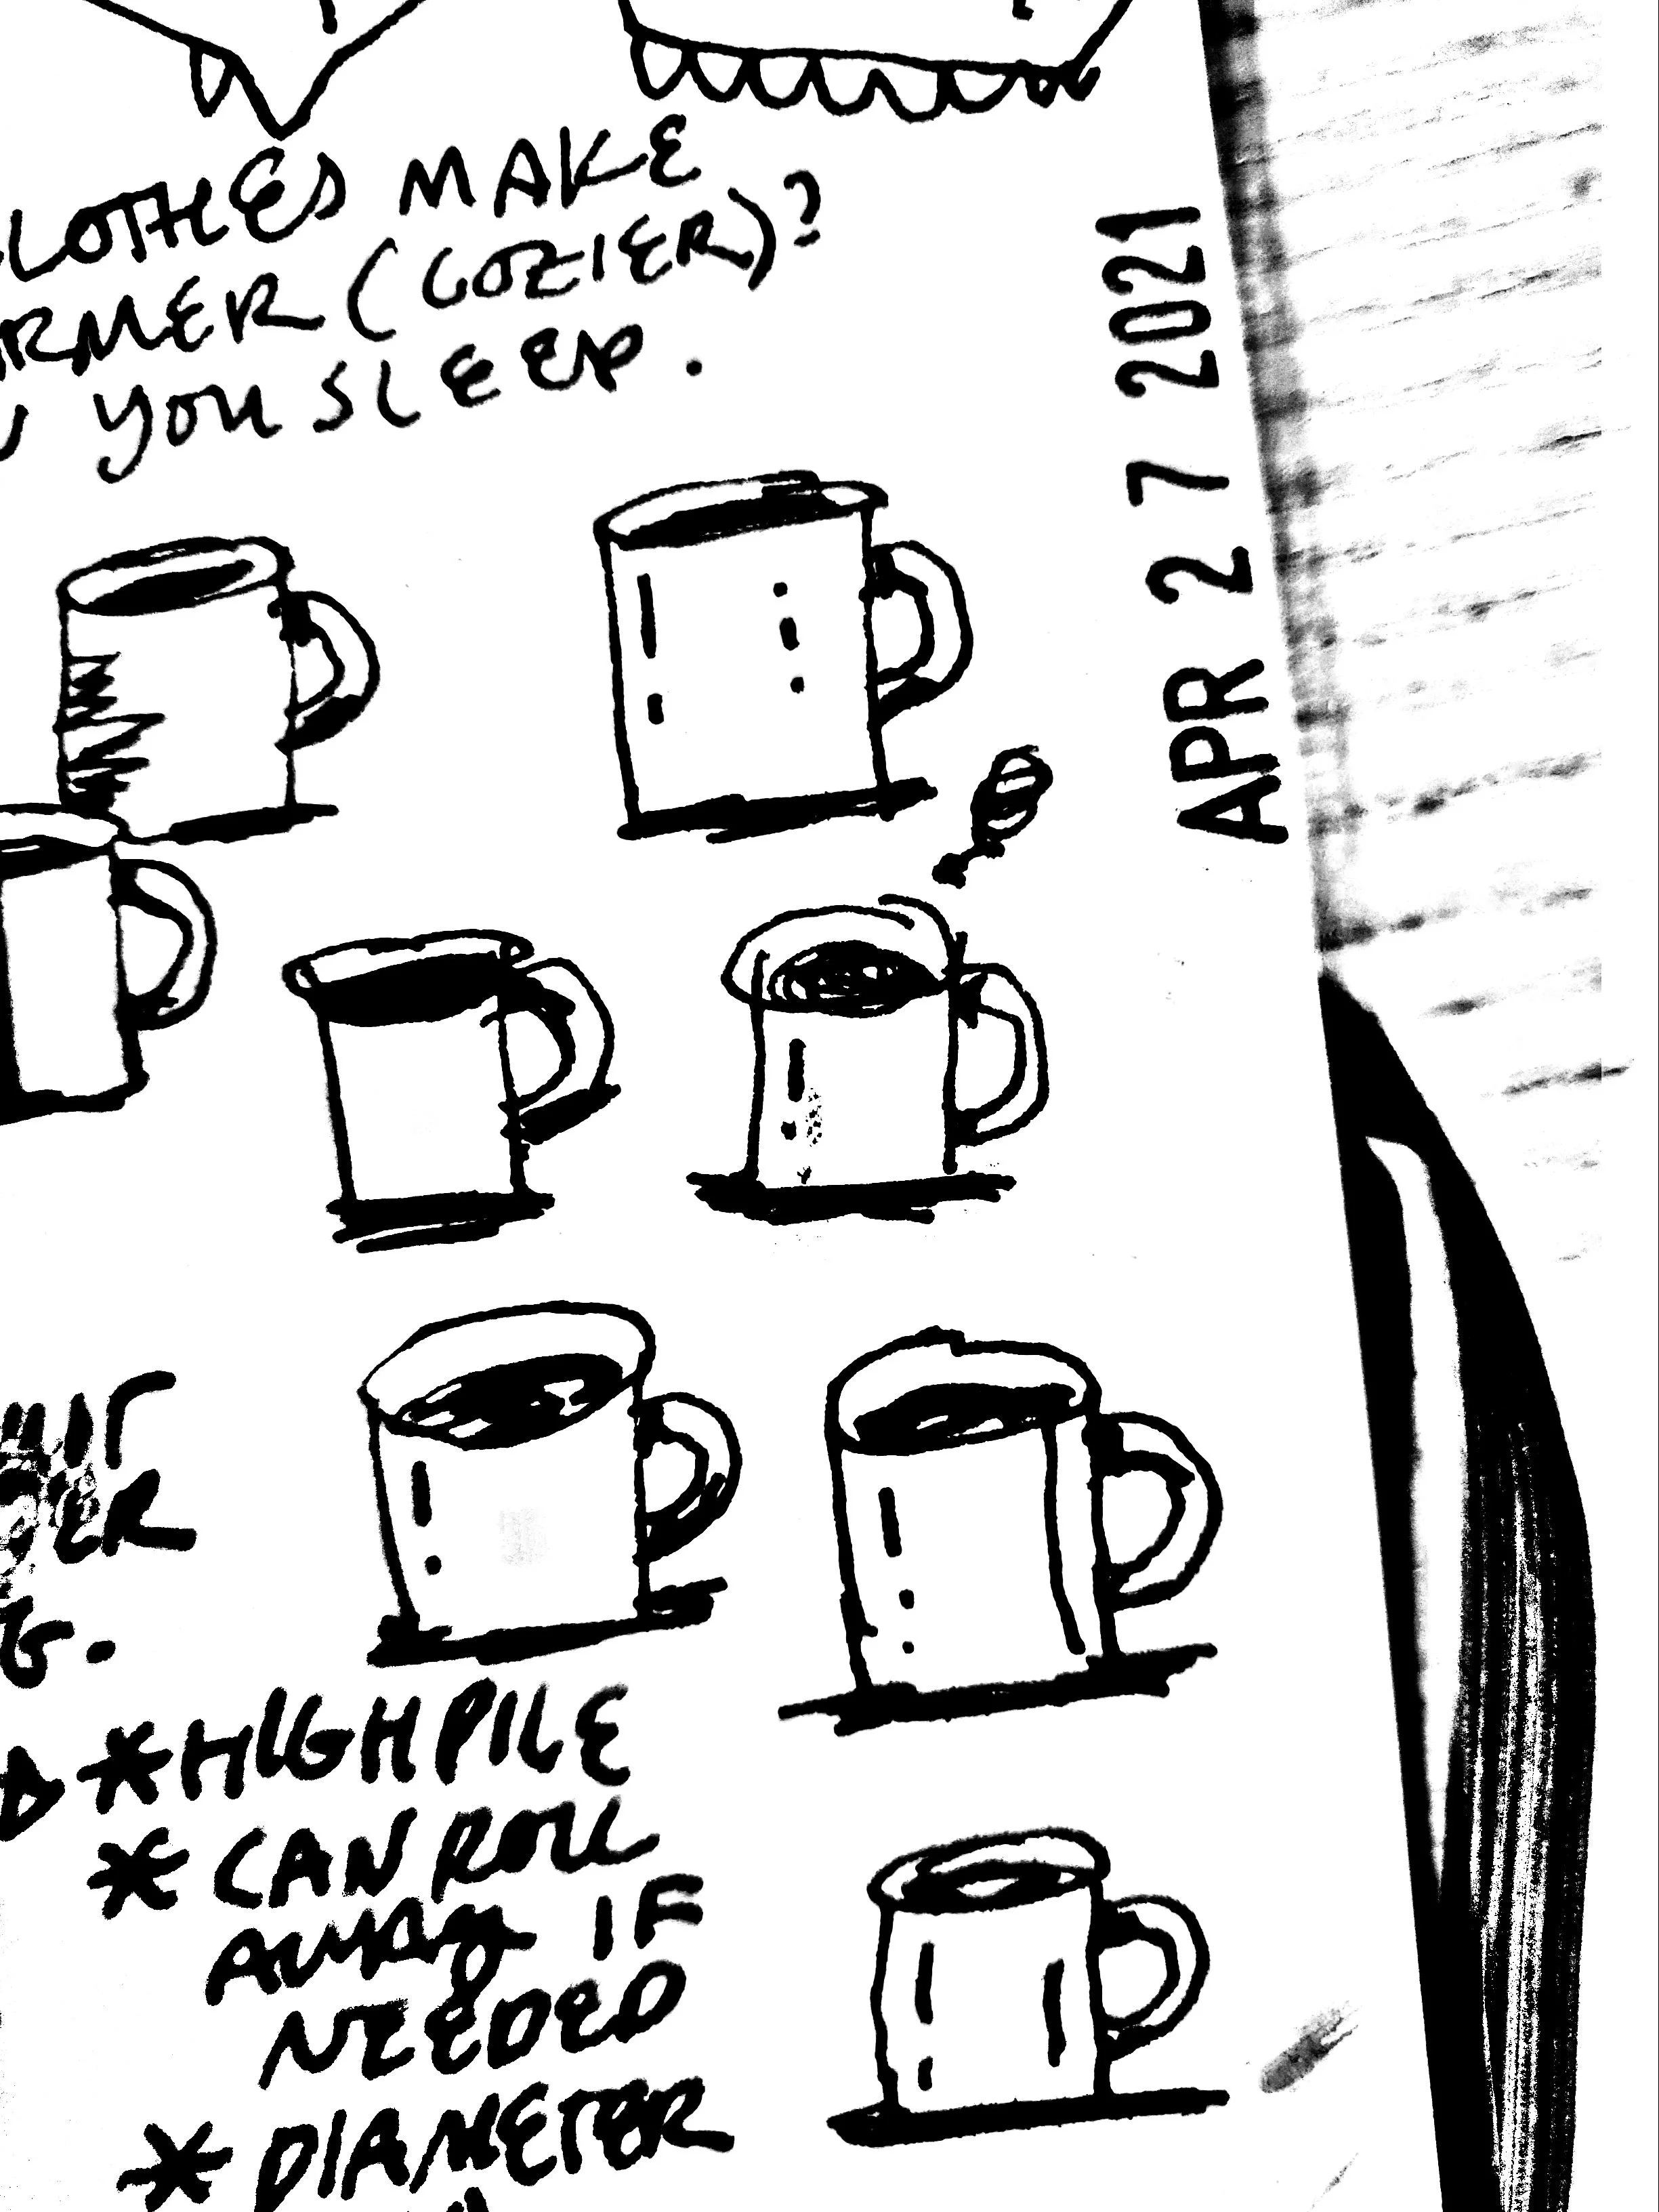 CLOTHES MAKE
ARMER (COZIER)?
YOU SLEEP.
APR 27 2021
ER
G.
*HIGH PILE
* CAN ROLL
AWAY IF
NEEDED
* DIAMETER